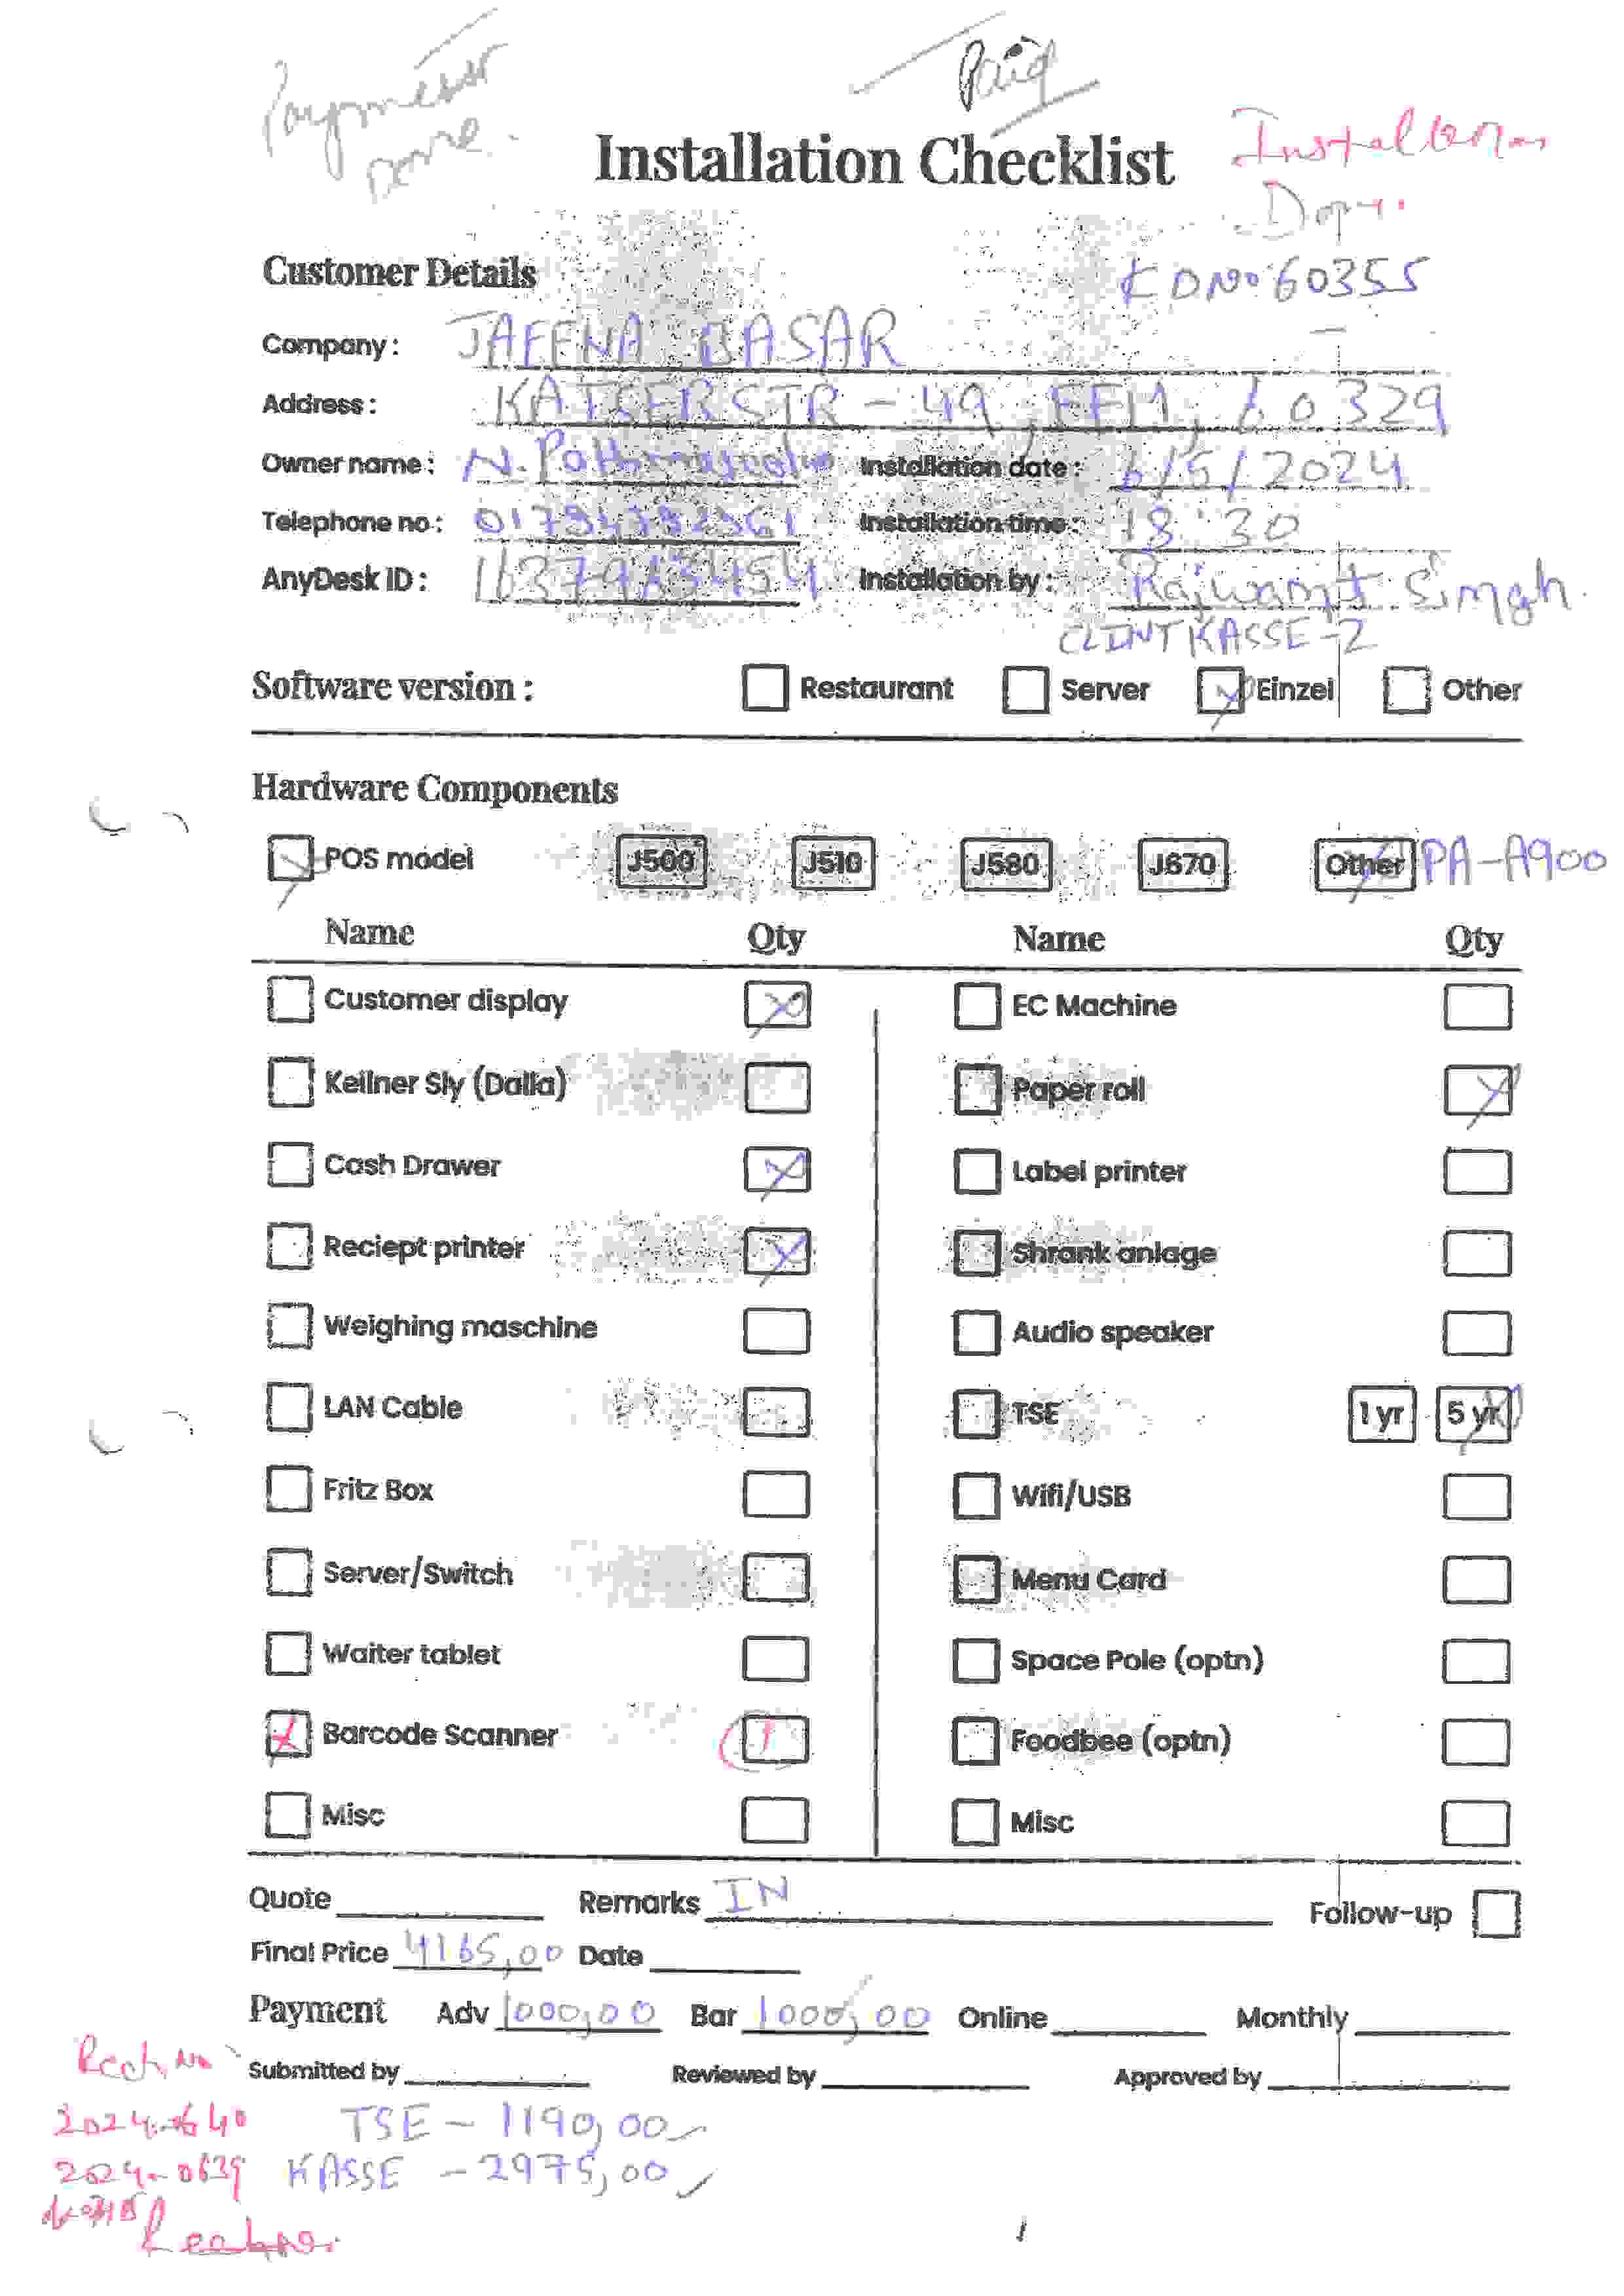 Payment Done.
Paid
Installation Checklist
Installation
Customer Details
KDNo 60355
Company: JAFFNA BASAR
Address: KAISERSTR - 49, FFM, 60329
Owner name: N.
Installation date: 6/5/2024
Telephone no:
Installation time: 18:30
AnyDesk ID:
Installation by: Rajwant Singh.
CLINT KASSE-2
Software version: Restaurant Server Einzel Other
Hardware Components
POS model J500 J510 J580 J670 Other PA-A900
Name Qty Name Qty
Customer display EC Machine
Kellner Sly (Dalla) Paper roll
Cash Drawer Label printer
Reciept printer Shrank anlage
Weighing maschine Audio speaker
LAN Cable TSE 1 yr 5 yr
Fritz Box Wifi/USB
Server/Switch Menu Card
Waiter tablet Space Pole (optn)
Barcode Scanner 1 Foodbee (optn)
Misc Misc
Quote Remarks IN Follow-up
Final Price 4165,00 Date
Payment Adv 1000,00 Bar 1000,00 Online Monthly
Submitted by Reviewed by Approved by
TSE - 1190,00
2024-0639 KASSE - 2975,00